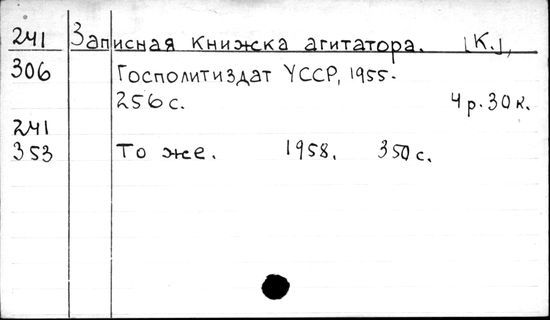 241 Записная книжка агитатора. [К.],
306 Госполитиздат УССР, 1955.
256 с. 4 р. 30 к.
241
353 То же. 1958. 350 с.